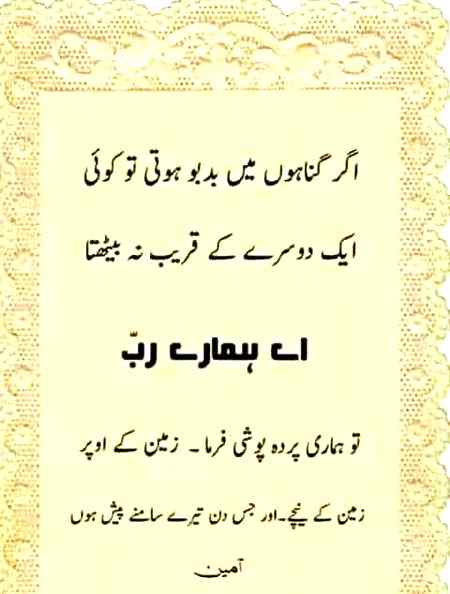 اگر گناہوں میں بدبو ہوتی تو کوئی
ایک دوسرے کے قریب نہ بیٹھتا
اے ہمارے ربّ
تو ہماری پردہ پوشی فرما ۔ زمین کے اوپر
زمین کے نیچے۔اور جس دن تیرے سامنے پیش ہوں
آمین